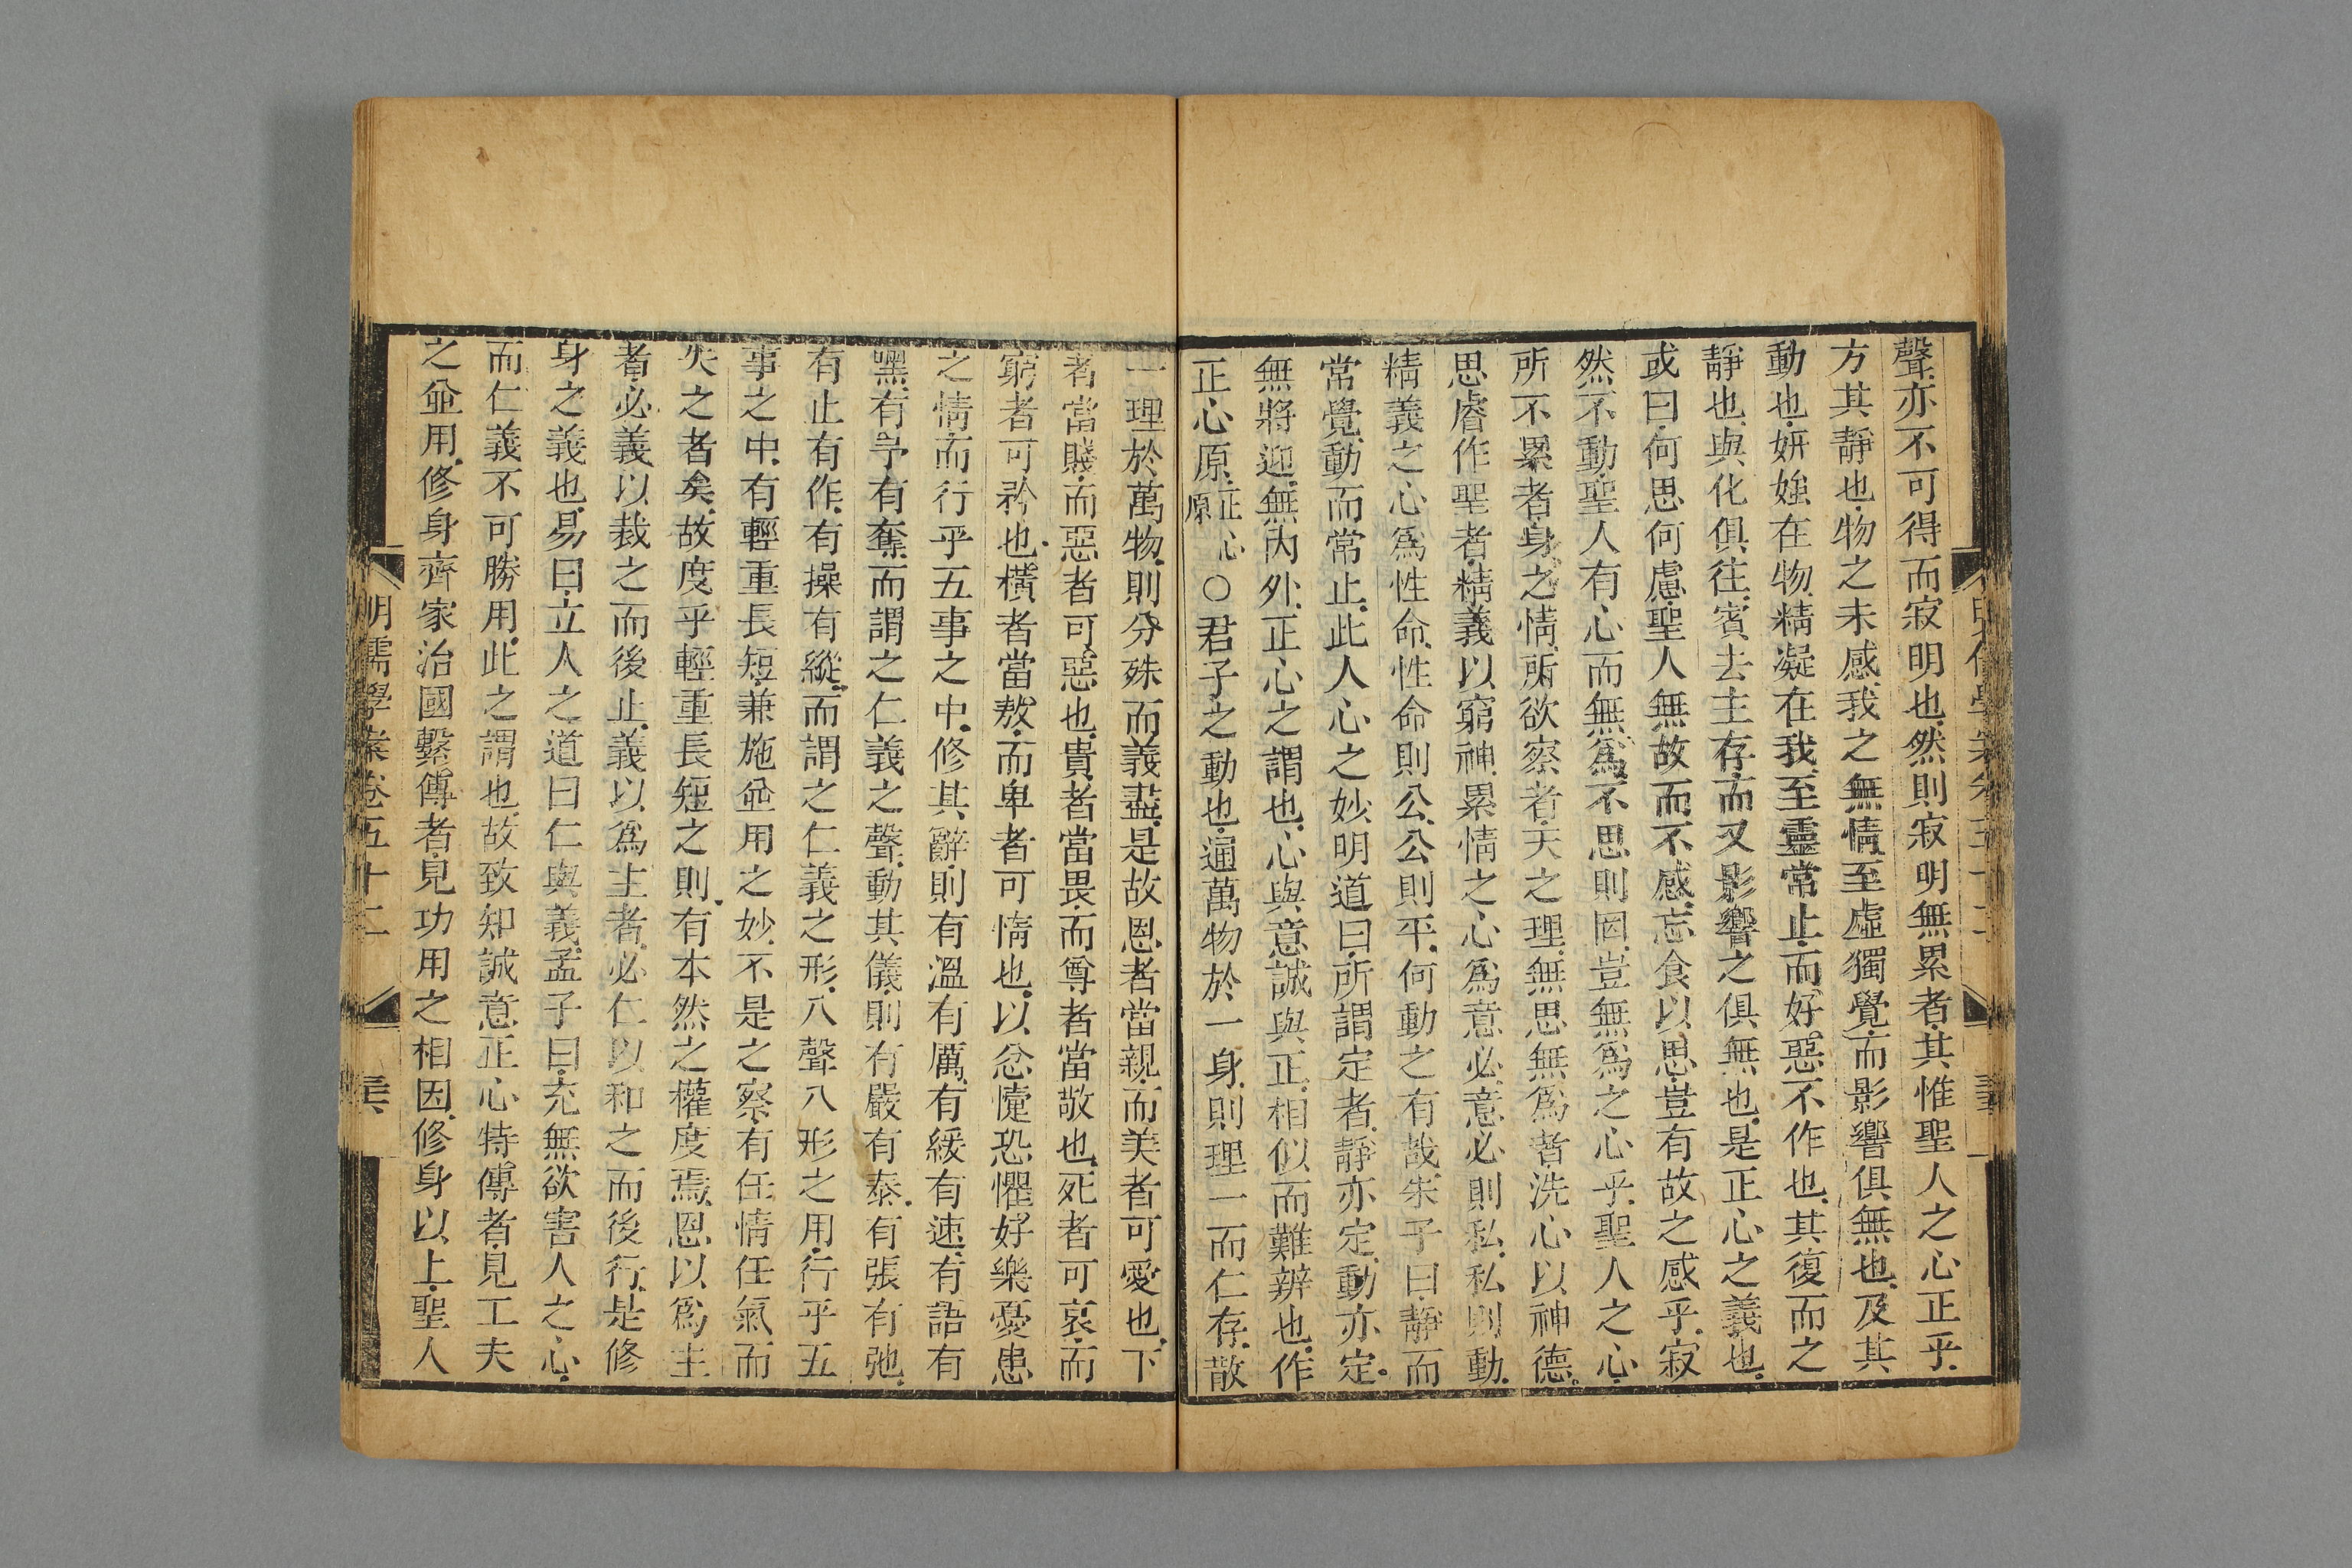 聲亦不可得而寂明也然則寂明無累者其惟聖人之心正乎
方其靜也物之未感我之無情至虛獨覺而影響俱無也及其
動也妍媸在物精凝在我至靈常止而好惡不作也其復而之
靜也與化俱徃賓去主存而又影響之俱無也是正心之義也
或曰何思何慮聖人無故而不感忘食以思豈有故之感乎寂
然不動聖人有心而無爲不思則罔豈無爲之心乎聖人之心
所不累者身之情所欲察者天之理無思無爲者洗心以神德
思睿作聖者精義以窮神累情之心爲意必意必則私私則動
精義之心爲性命性命則公公則平何動之有哉朱子曰靜而
常覺動而常止此人心之妙明道曰所謂定者靜亦定動亦定
無將迎無內外正心之謂也心與意誠與正相似而難辨也作
正心原正心原○君子之動也通萬物於一身則理一而仁存散
一理於萬物則分殊而義盡是故恩者當親而美者可愛也下
者當賤而惡者可惡也貴者當畏而尊者當敬也死者可哀而
窮者可矜也橫者當敖而卑者可惰也以忿懥恐懼好樂憂患
之情而行乎五事之中修其辭則有溫有厲有緩有速有語有
嘿有予有奪而謂之仁義之聲動其儀則有嚴有泰有張有弛
有止有作有操有縱而謂之仁義之形八聲八形之用行乎五
事之中有輕重長短兼施並用之妙不是之察有任情任氣而
失之者矣故度乎輕重長短之則有本然之權度焉恩以爲主
者必義以裁之而後止義以爲主者必仁以和之而後行是修
身之義也易曰立人之道曰仁與義孟子曰充無欲害人之心
而仁義不可勝用此之謂也故致知誠意正心特傳者見工夫
之並用修身齊家治國繫傳者見功用之相因修身以上聖人
明儒學案卷五十二